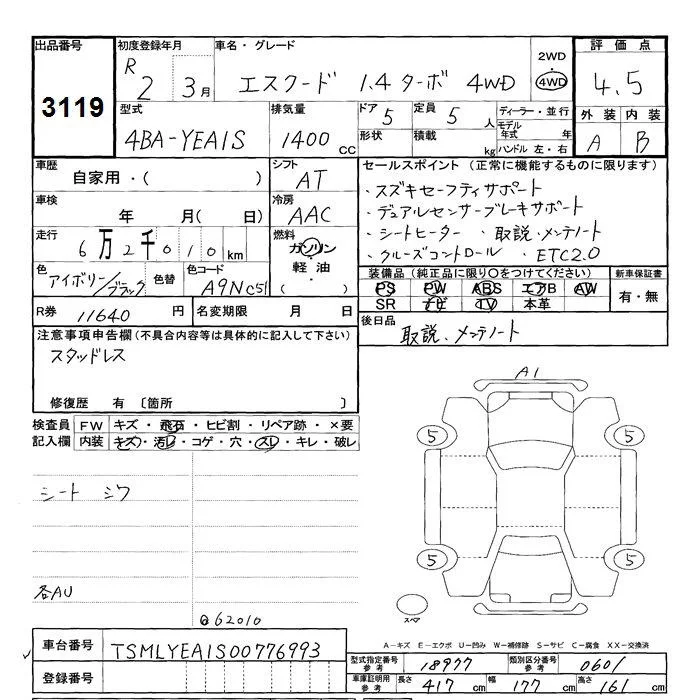 出品番号 初度登録年月 車名・グレード 評価点
3119 R 2 3月 エスクード 1.4ターボ 4WD 2WD 4WD 4.5
型式 排気量 ドア 5 定員 5 人 ディーラー・並行 外装 内装
4BA-YEA1S 1400 cc 形状 積載 kg モデル年式 年 ハンドル 左・右 A B
車歴 自家用・( ) シフト AT セールスポイント (正常に機能するものに限ります)
車検 年 月( 日) 冷房 AAC ・スズキセーフティサポート
・デュアルセンサーブレーキサポート
走行 6万2千010km 燃料 ガソリン・軽油・( ) ・シートヒーター ・取説、メンテノート
・クルーズコントロール ・ETC2.0
色 アイボリー/ブラック 色替 色コード A9N(C5) 装備品 (純正品に限り○をつけてください) 新車保証書
PS PW ABS エアB AW 有・無
SR ナビ TV 本革
R券 11640 円 名変期限 月 日 後日品 取説、メンテノート
注意事項申告欄 (不具合内容等は具体的に記入して下さい)
スタッドレス
修復歴 有 〔箇所 〕
検査員 FW キズ・飛石・ヒビ割・リペア跡・×要
記入欄 内装 キズ・汚レ・コゲ・穴・スレ・キレ・破レ
A1
5 5
シート シワ
5 5
各AU
@62010
スペア
A-キズ E-エクボ U-凹み W-補修跡 S-サビ C-腐食 XX-交換済
車台番号 TSMLYEA1S00776993
型式指定番号 参考 18977 類別区分番号 参考 0601
登録番号 車庫証明用 参考 長さ 417 cm 幅 177 cm 高さ 161 cm